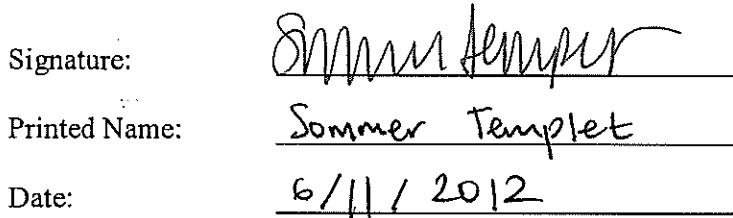 Signature: Sommer Templet
Printed Name: Sommer Templet
Date: 6/11/2012